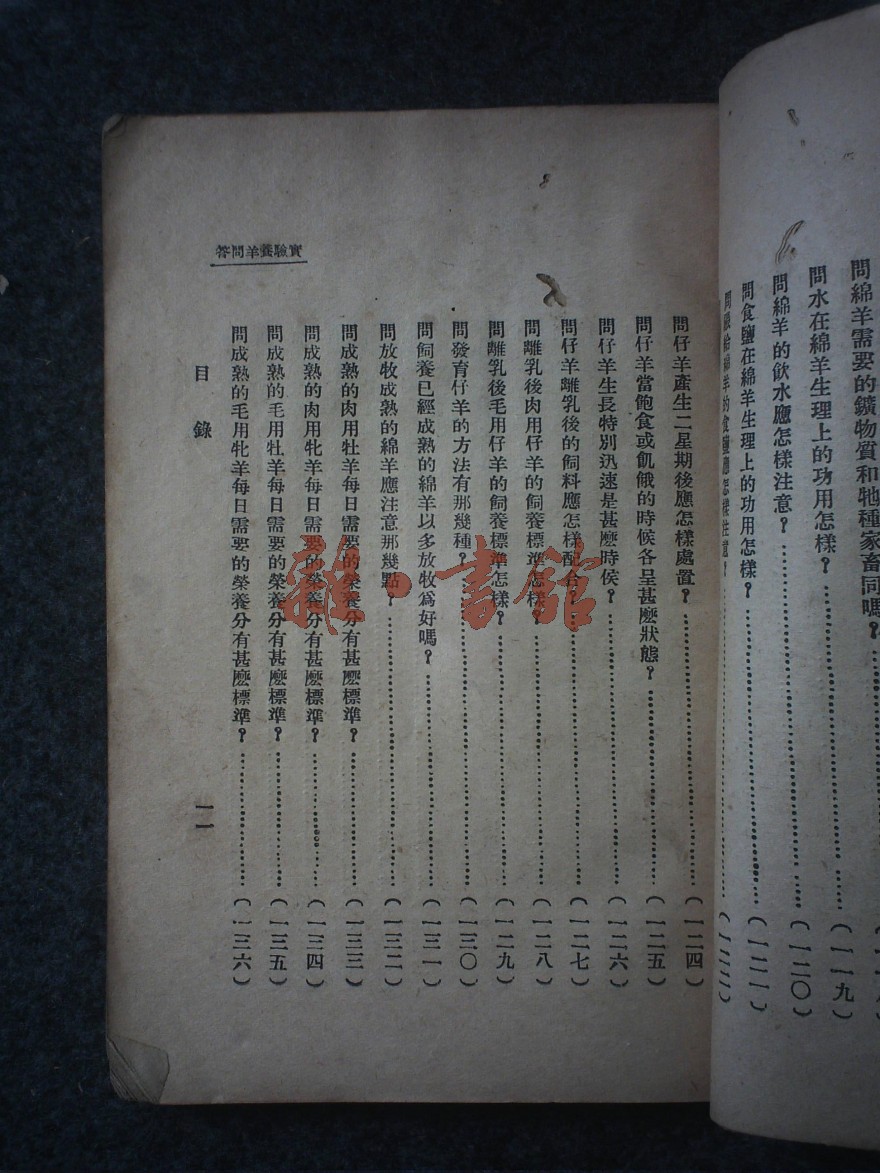 問綿羊需要的鑛物質和牠種家畜同嗎？
問水在綿羊生理上的功用怎樣？……(一一九)
問綿羊的飲水應怎樣注意？……(一二〇)
問食鹽在綿羊生理上的功用怎樣？……(一二一)
羊的食鹽應怎樣注意？……(一二二)
問仔羊產生二星期後應怎樣處置？……(一二四)
問仔羊當飽食或飢餓的時候各呈甚麼狀態？……(一二五)
問仔羊生長特別迅速是甚麼時侯？……(一二六)
問仔羊離乳後的飼料應怎樣配合？……(一二七)
問離乳後肉用仔羊的飼養標準怎樣？……(一二八)
問離乳後毛用仔羊的飼養標準怎樣？……(一二九)
問發育仔羊的方法有那幾種？……(一三〇)
問飼養已經成熟的綿羊以多放牧爲好嗎？……(一三一)
問放牧成熟的綿羊應注意那幾點？……(一三二)
問成熟的肉用牡羊每日需要的榮養分有甚麼標準？……(一三三)
問成熟的肉用牝羊每日需要的榮養分有甚麼標準？……(一三四)
問成熟的毛用牡羊每日需要的榮養分有甚麼標準？……(一三五)
問成熟的毛用牝羊每日需要的榮養分有甚麼標準？……(一三六)
實驗養羊問答
目錄
一一
雜·書館